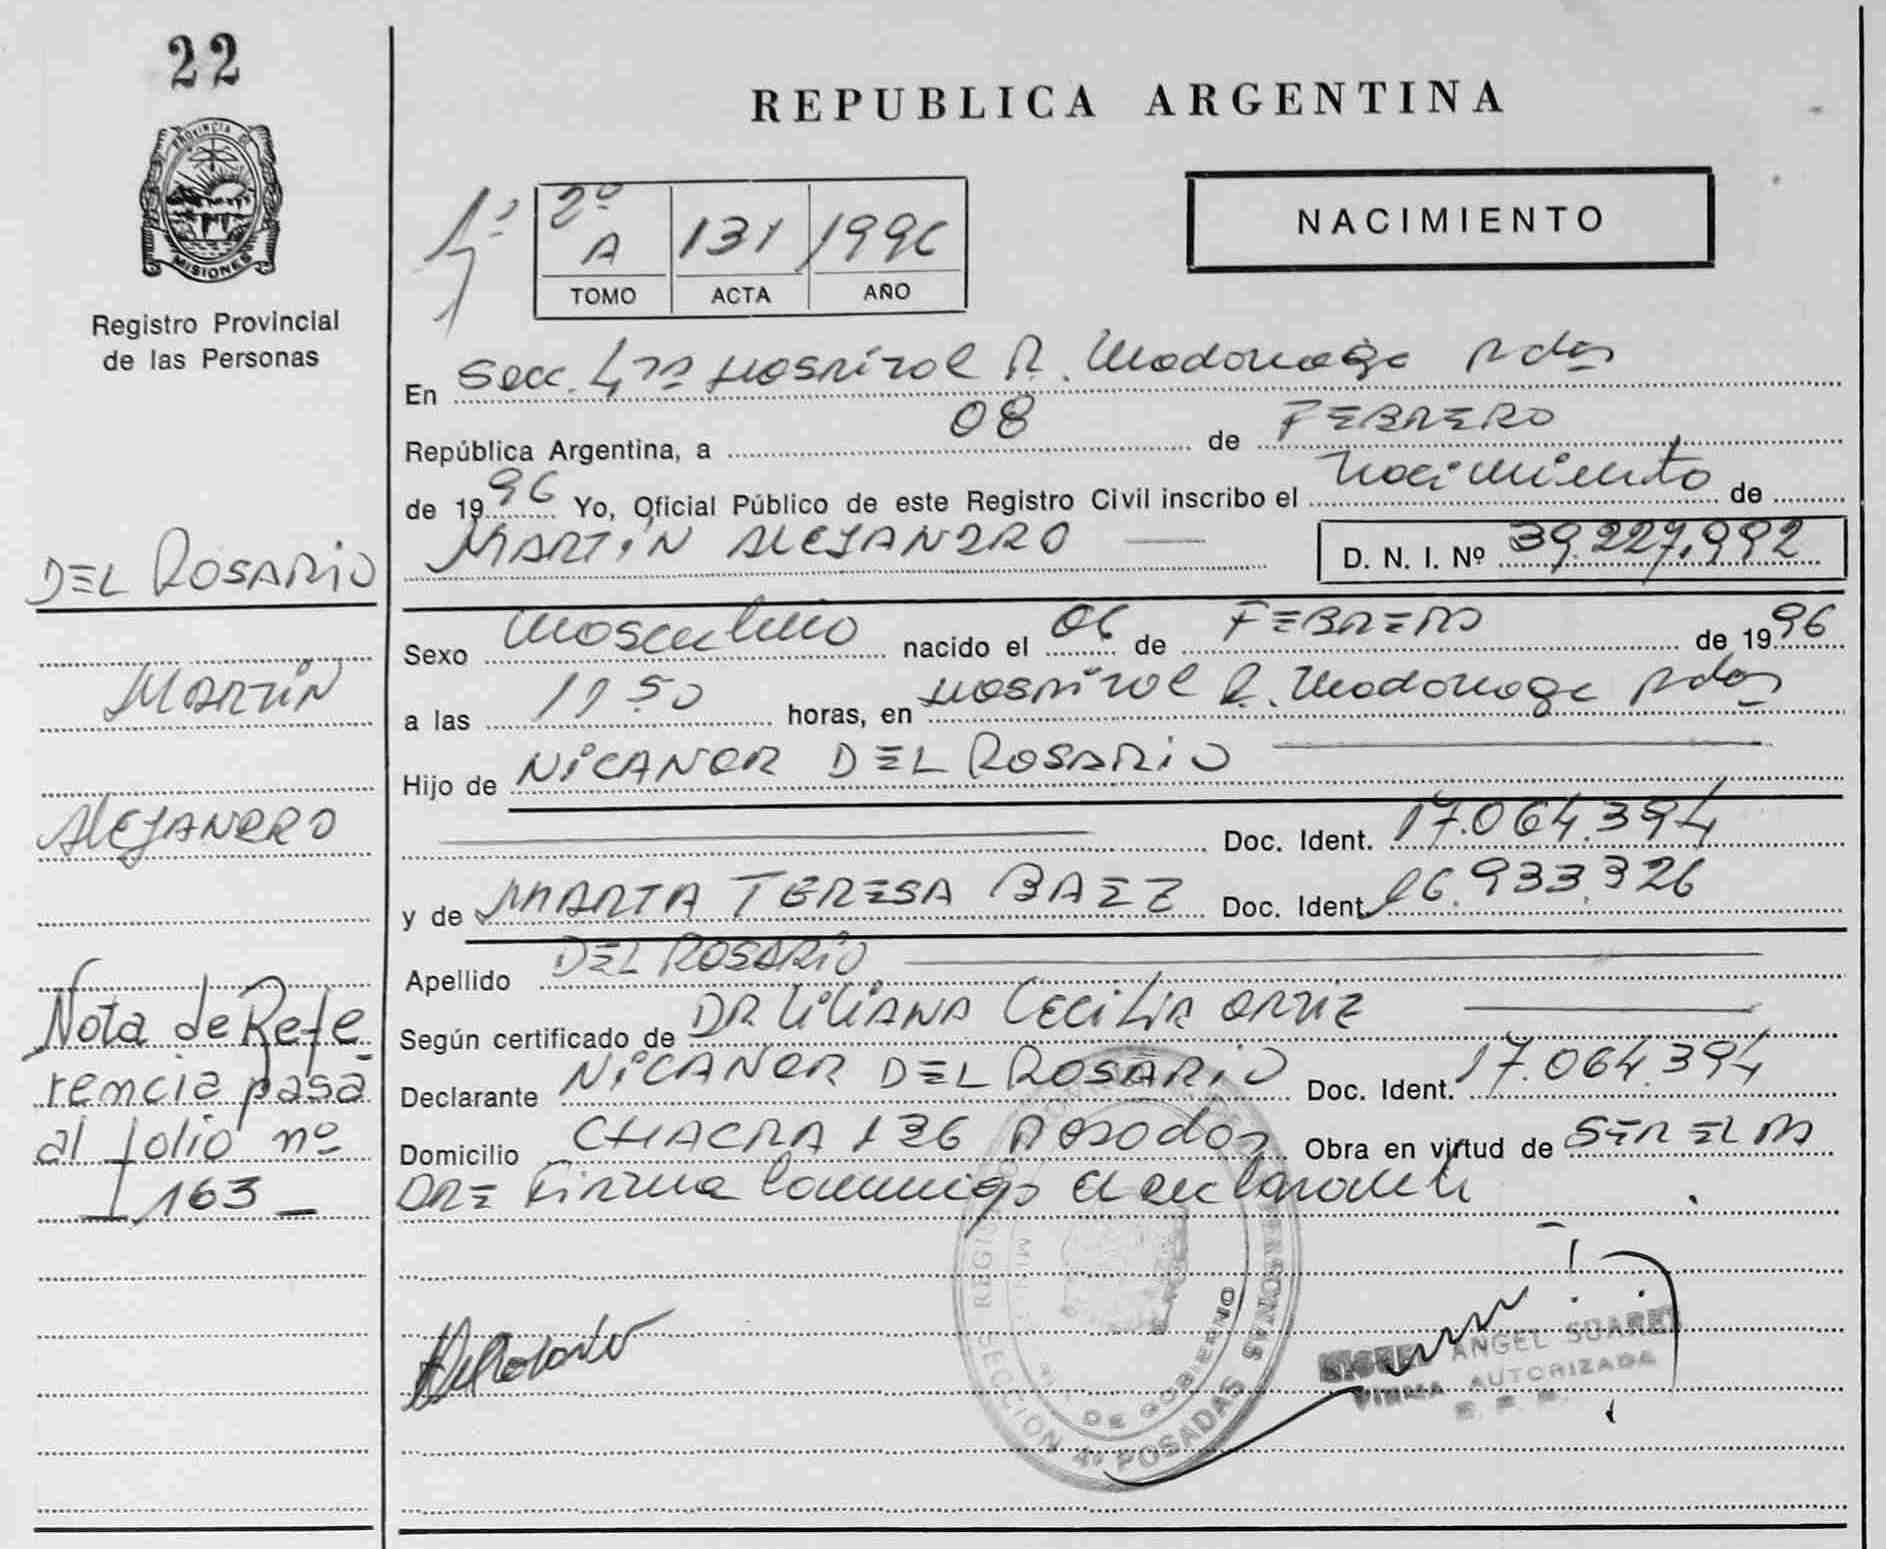 22
PROVINCIA DE
MISIONES
Registro Provincial
de las Personas
REPUBLICA ARGENTINA
NACIMIENTO
4º 2º A 131 1996
TOMO ACTA AÑO
En Secc. 4ta Hospital R. Madariaga Pdas
República Argentina, a 08 de FEBRERO
de 1996 Yo, Oficial Público de este Registro Civil inscribo el nacimiento de
MARTIN ALEJANDRO D. N. I. Nº 39.227.992
DEL ROSARIO
MARTIN
ALEJANDRO
Sexo masculino nacido el 06 de FEBRERO de 1996
a las 11 50 horas, en Hospital R. Madariaga Pdas
Hijo de NICANOR DEL ROSARIO
Doc. Ident. 17.064.394
y de MARTA TERESA BAEZ Doc. Ident. 16.933.326
Apellido DEL ROSARIO
Según certificado de DR LILIANA CECILIA ORTIZ
Declarante NICANOR DEL ROSARIO Doc. Ident. 17.064.394
Domicilio CHACRA 136 Posadas Obra en virtud de SER EL PA
DRE Firma conmigo el declarante
Nota de Refe
rencia pasa
al folio nº
163
Del Rosario
MIGUEL ANGEL SUAREZ
FIRMA AUTORIZADA
R. P. P.
SECCION 4º POSADAS
M. DE GOBIERNO